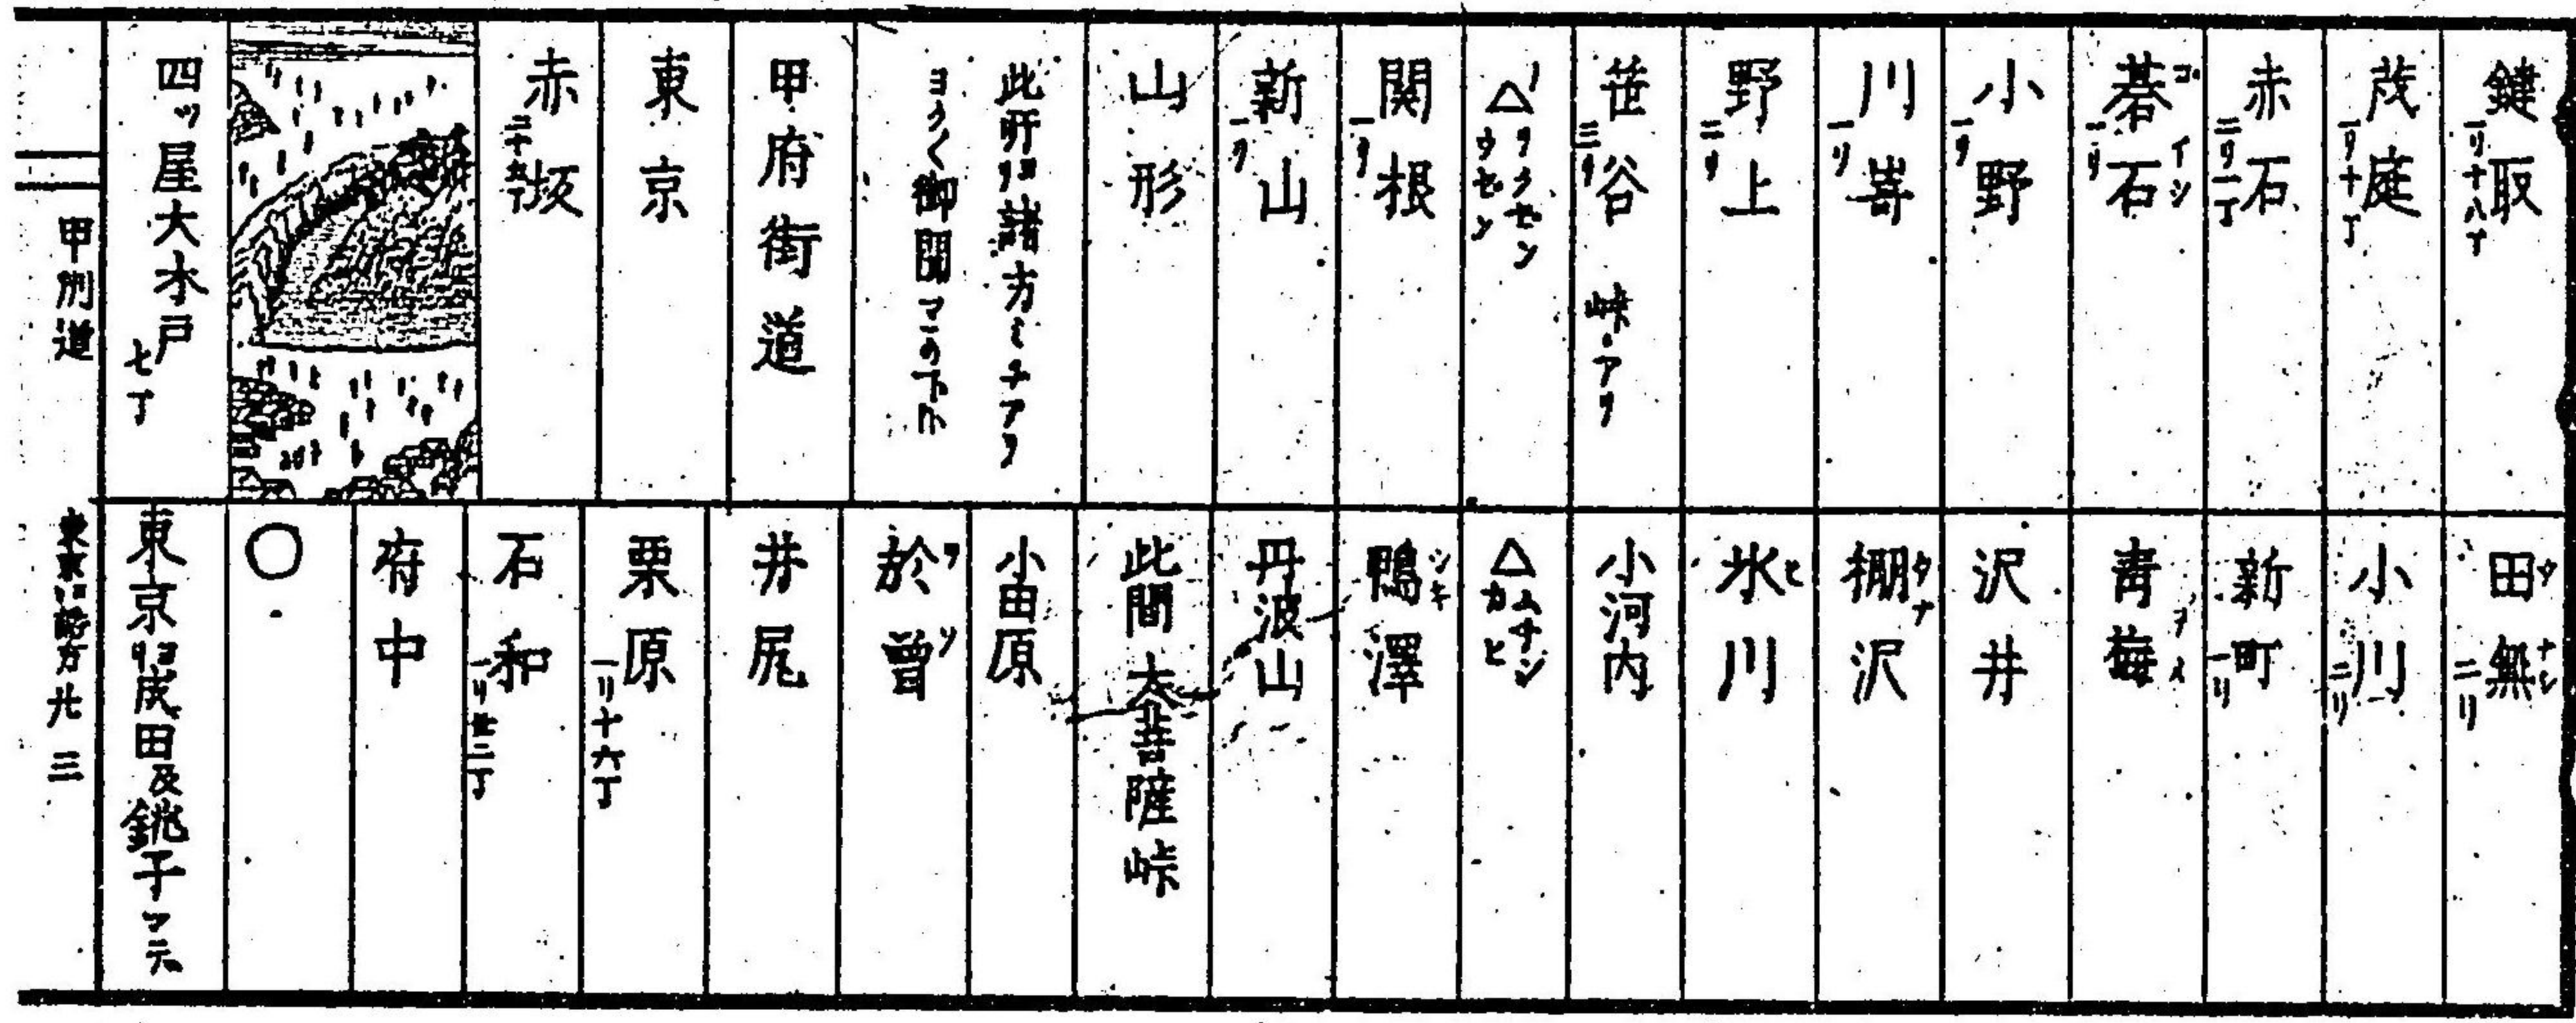 鍵取 一リ十八丁
茂庭 一リ十丁
赤石 二リ一丁
碁石 ゴイシ 一リ
小野 一リ
川嵜 一リ
野上 二リ
笹谷 三リ 峠アリ
△リクセン ウセン
関根 一リ
新山 一リ
山形
此所ヨリ諸方ミチアリ
ヨク〱御聞
甲府街道
東京
赤坂
四ッ屋大木戸 七丁
田無 タナシ 二リ
小川 二リ
新町 一リ
青梅 ヲメ
沢井
棚沢 タナ
氷川 ヒ
小河内
△ムサシ カヒ
鴨澤
丹波山
此間大菩薩峠
小田原
於曽 ヲソ
井尻
栗原 一リ十六丁
石和 一リ廿二丁
府中
〇
東京ヨリ成田及銚子マテ
甲州道
東京ヨリ諸方 廿三